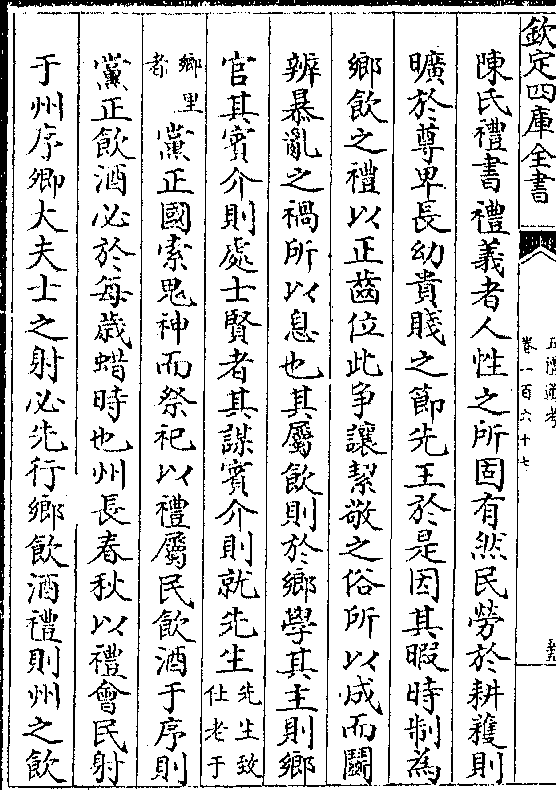 欽定四庫全書
五禮通考
卷一百六十七
陳氏禮書禮義者人性之所固有然民勞於耕穫則
曠於尊卑長幼貴賤之節先王於是因其暇時制為
鄉飲之禮以正齒位此爭讓絜敬之俗所以成而鬭
辨暴亂之禍所以息也其屬飲則於鄉學其主則鄉
官其賓介則處士賢者其謀賓介則就先生先生致仕老于
鄉里者黨正國索鬼神而祭祀以禮屬民飲酒于序則
黨正飲酒必於每歲蜡時也州長春秋以禮會民射
于州序卿大夫士之射必先行鄉飲酒禮則州之飲